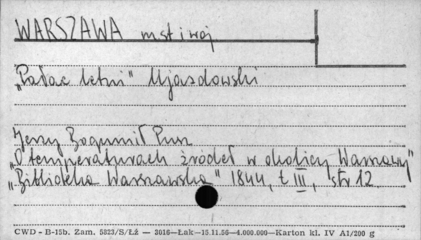 WARSZAWA mst i woj
"Pałac letni" Ujazdowski
Jerzy Bogumił Pusz
"O temperaturach źródeł w okolicy Warszawy"
"Biblioteka Warszawska" 1844, t III, str 12
CWD - B-15b. Zam. 5823/S/Łż — 3016—Łak—15.11.56—4.000.000—Karton kl. IV A1/200 g